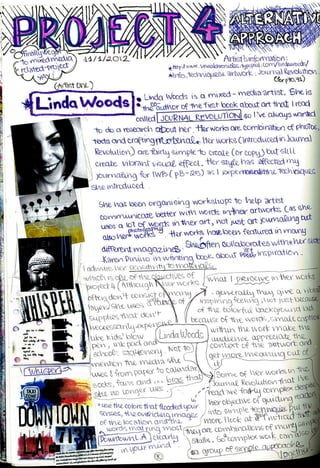 PROJECT 4
ALTERNATIVE
APPROACH
11/1/2012
Artist information:
(ARTIST ONE)
Linda Woods:
Linda Woods is a mixed-media artist. She is
the author of the first book about art that I read
called JOURNAL REVOLUTION so I've always wanted
to do a research about her. Her works are combination of photos,
texts and crafting material. Her works (introduced in Journal
Revolution) are fairly simple to create (or copy) but still
create vibrant visual effect. Her style has affected my
journaling for IWB
she introduced.
She has been organising workshops to help artist
communicate better with words in their artworks (as she
uses a lot of words in their art, not just art journaling but
also her photography works. Her works have been featured in many
different magazines. She often collaborates with her sister
Karen Dinino in writing book about art inspiration.
I admire her sensitivity to materials
which is one of the objectives of
project 4 (Although her works
often don't consist of many
types) She uses
supplies that don't
necessarily expensive
like kids' blow
pen, ink pad and
school stationery. Not to
mention the media she
uses: from paper to calendar,
books, fans and ... bras that
she no longer uses.
What I perceive in her works
- Generally they give a vibrant
inspiring feeling, not just because
of the colorful background but
because of the words, small caption
within the work make the
audience appreciate the
content of the artwork and
get more meaning out of
it
Linda Woods
Some of her works in the
Journal Revolution that I've
read are fairly complex despite
her objective of guiding readers
into simple techniques. But the
more I look at it
they are combinations of many simple
skills. So complex work can also be
a group of simple approaches.
"Use the colors that flooded your
senses, the overriding images
of the location and the
words that ring most
clearly
in your mind"
WHISPER
(Whisper)
DOWNTOWN
L.A.
(Downtown L.A)